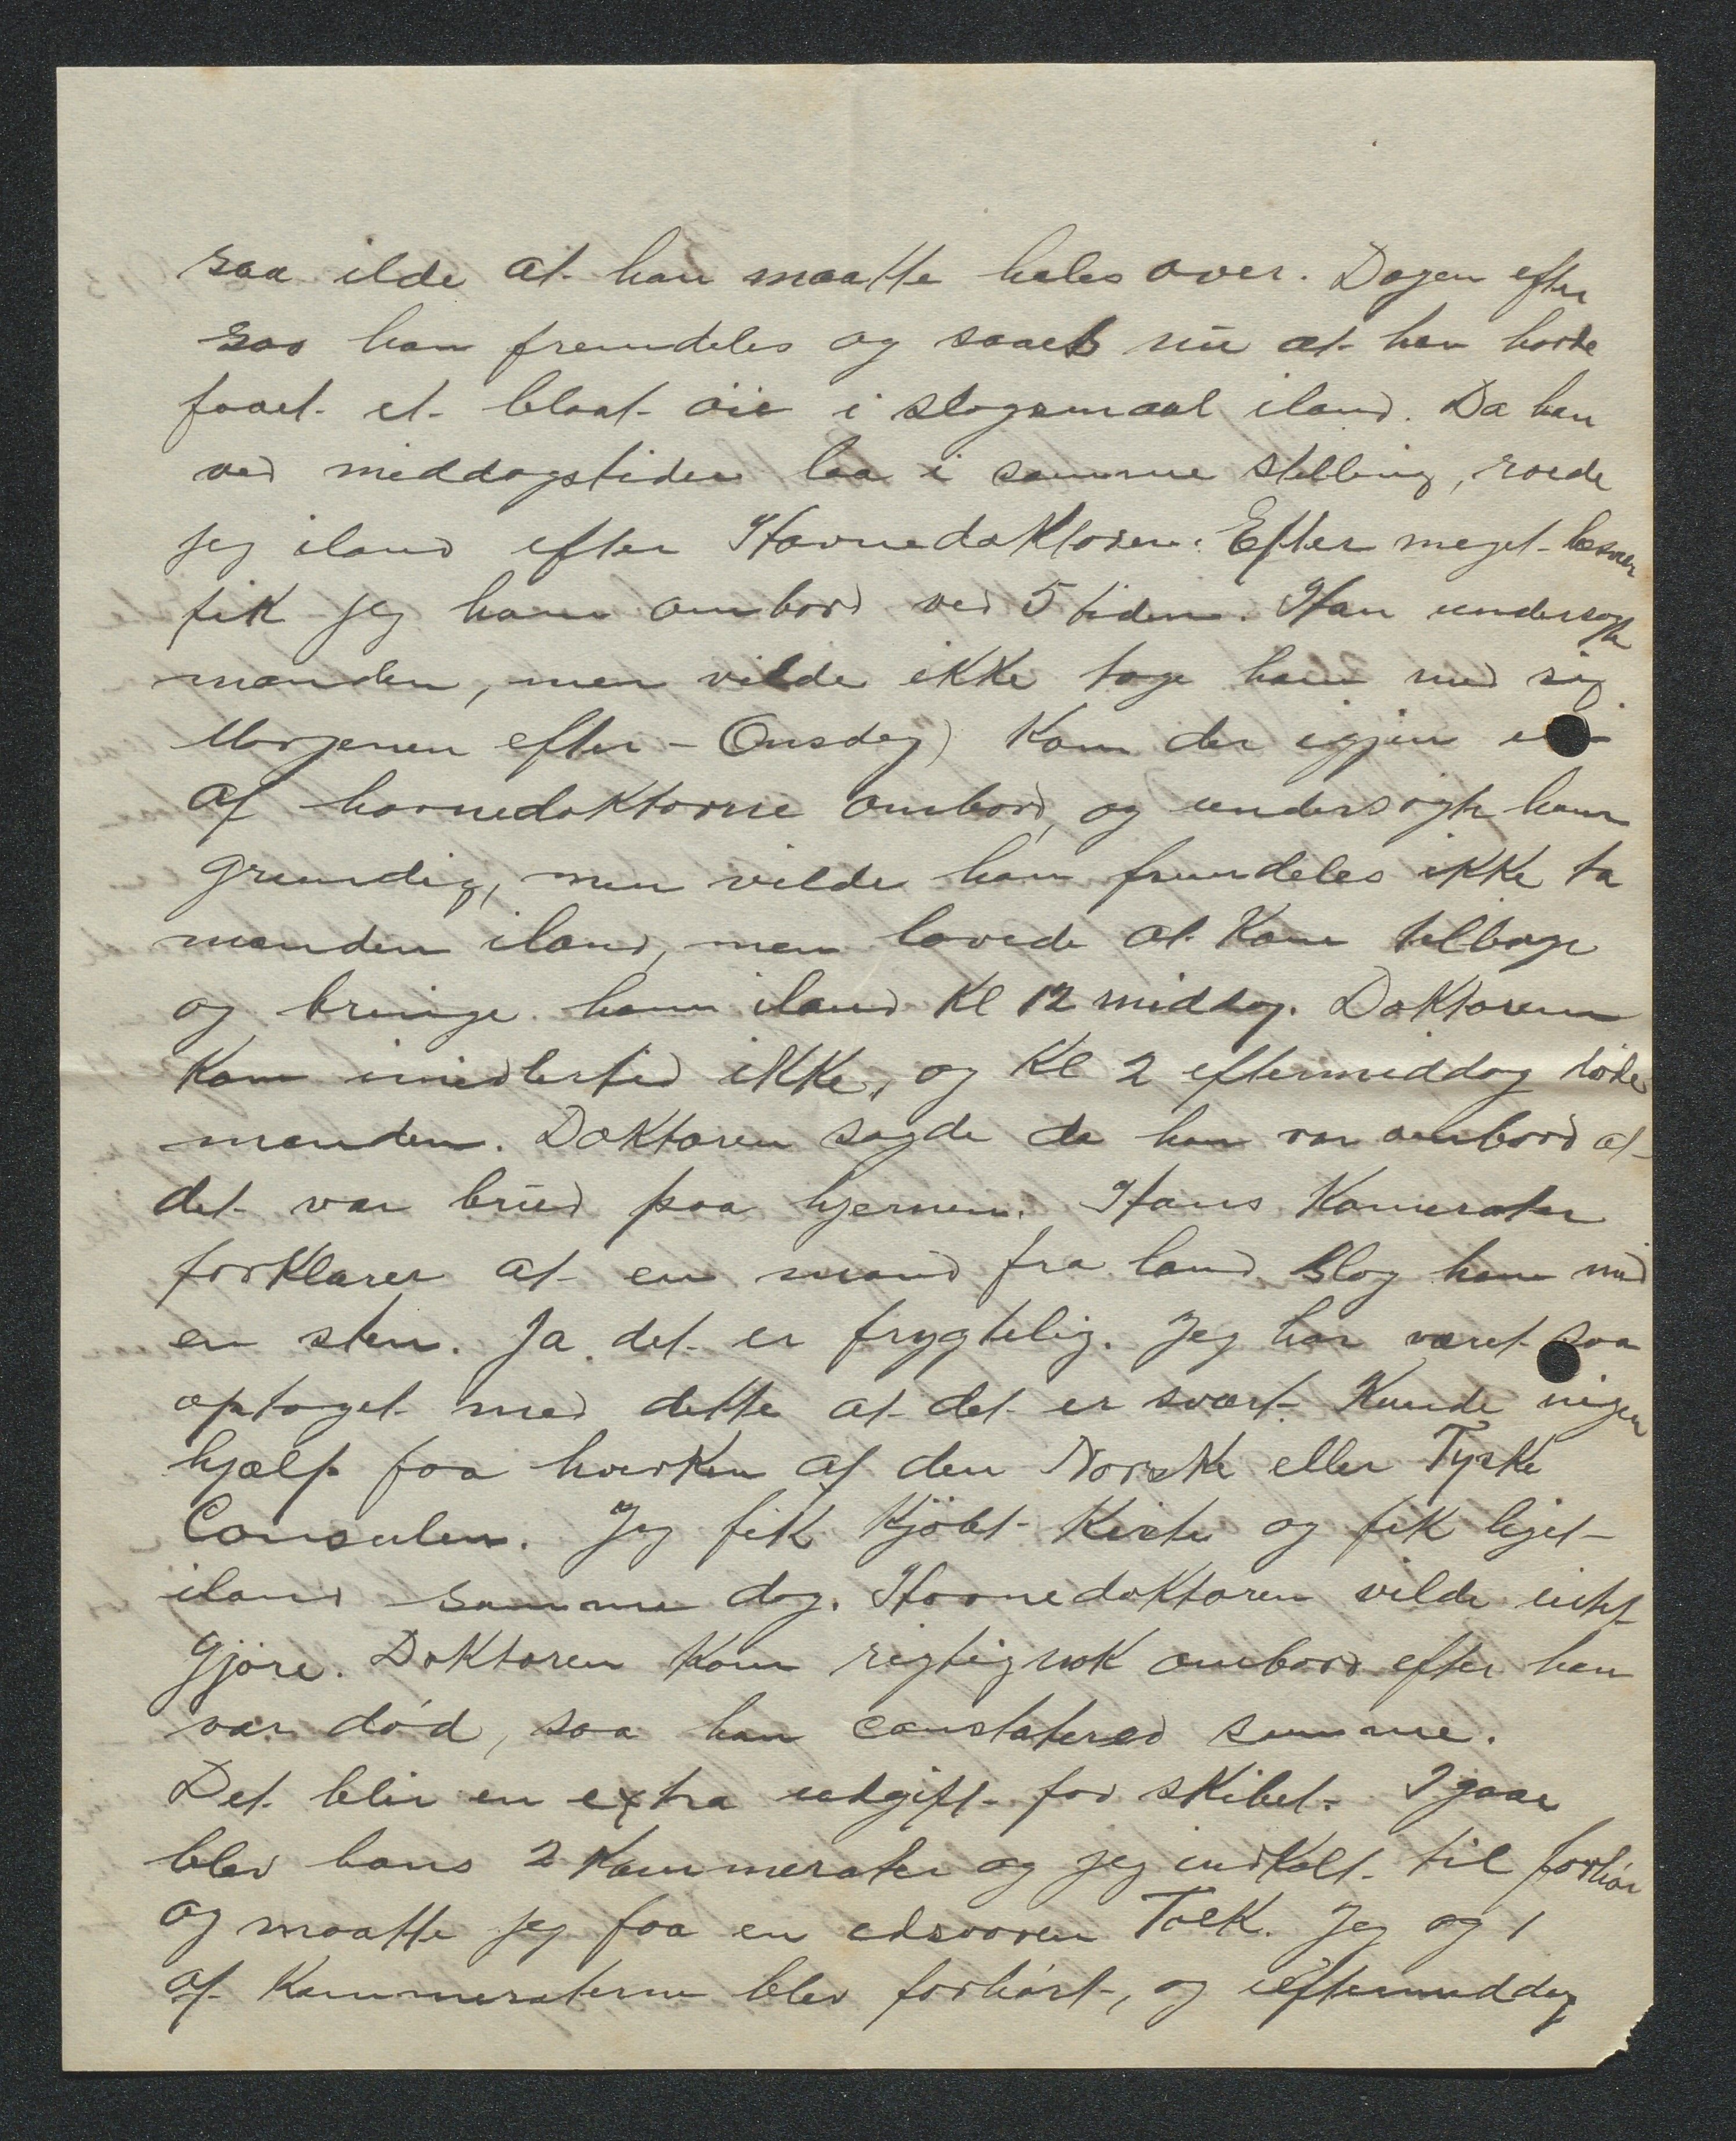 saa ilde at han maatte hales over. Dagen efter
sov han fremdeles og saaes nu at han havde
faaet et blaat øie i slagsmaal iland. Da han
ved middagstiden laa i samme stilling, roede
jeg iland efter Havnedoktoren. Efter meget besvær
fik jeg ham ombord ved 5 tiden. Han undersøgte
manden, men vilde ikke tage ham med sig
Morgenen efter - Onsdag) kom der igjen en
af havnedoktorne ombord, og undersøgte ham
grundig, men vilde han fremdeles ikke ta
manden iland, men lovede at komme tilbage
og bringe ham iland Kl 12 middag. Doktoren
kom imidlertid ikke, og Kl 2 eftermiddag døde
manden. Doktoren sagde da han var ombord at
det var brud paa hjernen. Hans Kamerater
forklarer at en mand fra land slog ham med
en sten. Ja det er frygtelig. Jeg har været saa
optaget med dette at det er svært. Kunde ingen
hjælp faa hverken af den Norske eller Tyske
Consulen. Jeg fik kjøbt Kiste og fik liget
iland samme dag. Havnedoktoren vilde intet
gjøre. Doktoren kom rigtignok ombord efter han
var død, saa han constatered samme.
Det blir en extra udgift for skibet. Igaar
blev hans 2 Kammerater og jeg indkalt til forhør
og maatte jeg faa en edsvoren Tolk. Jeg og 1
af Kammeraterne blev forhørt, og ieftermiddag